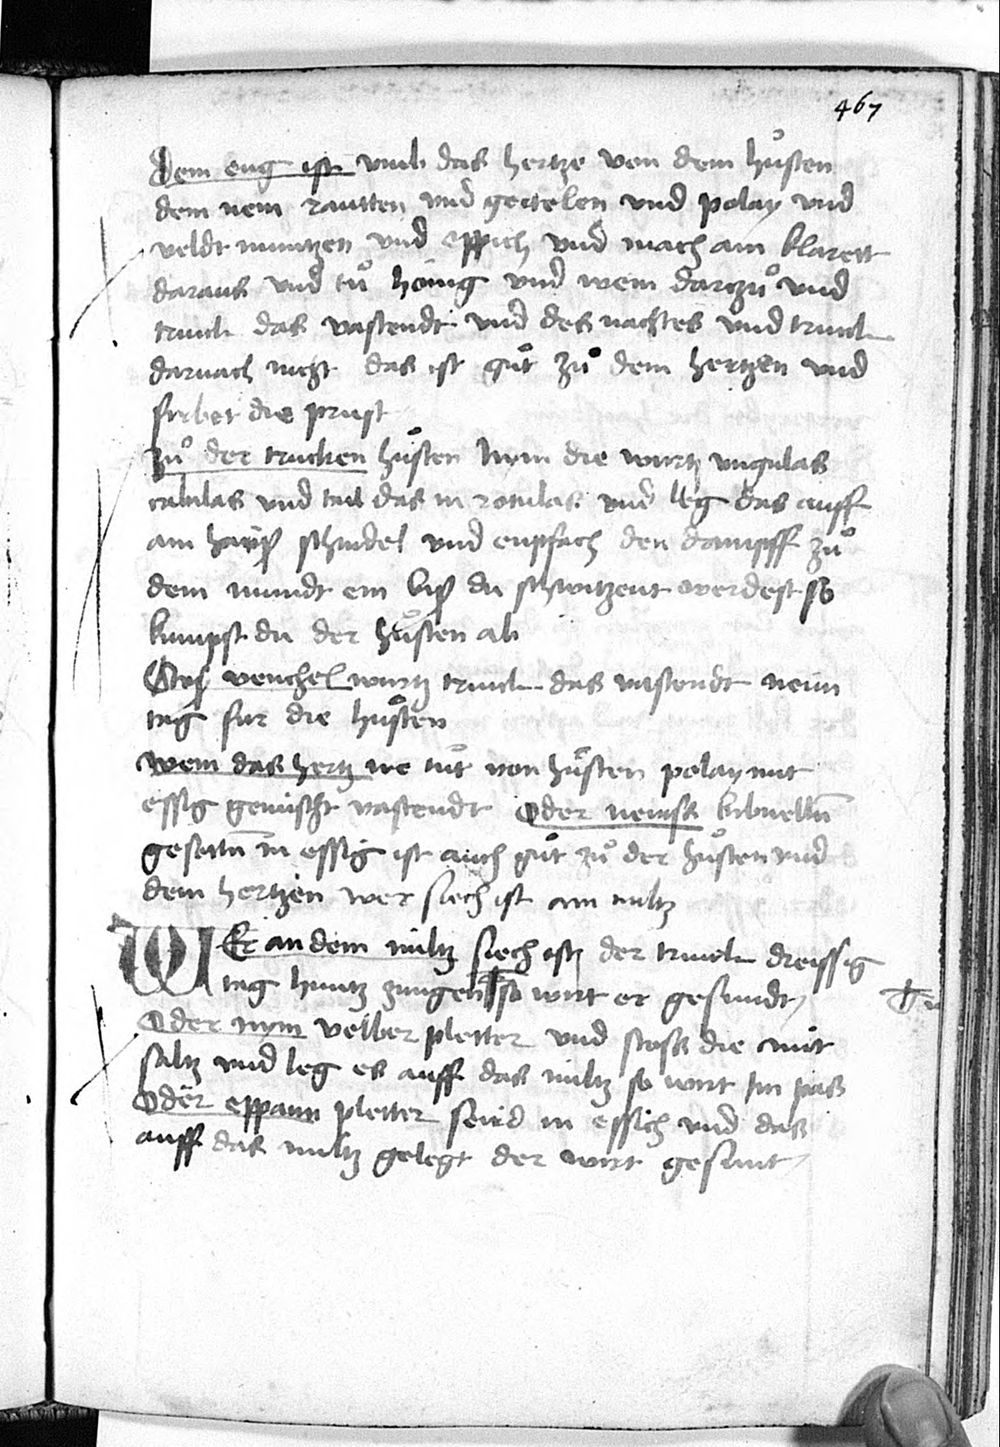 467
Dem eng ist vmb das hertze von dem hůsten
dem nem rautten vnd gertelen vnd polay vnd
veldt muntzen vnd eppich vnd mach ain klarett
daraus vnd tů honig vnd wein dartzů vnd
trinck das vastendt vnd des nachtes vnd trinck
darnach nicht das ist gůt zů dem hertzen vnd
furbet die prust
Zů der trucken hůsten Nym die wurtz vngulas
caballas vnd tail das in rotulas vnd leg das auff
ain haiß schindel vnd enpfach den dampff zů
dem mundt ein biß du schwitzent werdest so
kumpst du der hůsten ab
Stoß venchel wurtz trinck das vastendt neun
tag fur die hůsten
Wem das hertz we tůt von hůsten polay mit
essig gemischt vastendt Oder bibnelln̄
gesottn̄ in essig ist auch gůt zů der hůsten vnd
dem hertzen wer siech ist am miltz
WEr an dem miltz siech ist der trinck dreissig
tag hirutz zungen so wirt er gesundt
Oder nym velber pletter vnd stoss die mit
saltz vnd leg es auff das miltz so wirt im pas
Oder eppaum pletter seud in essich vnd das
auff das miltz gelegt der wirt gesunt